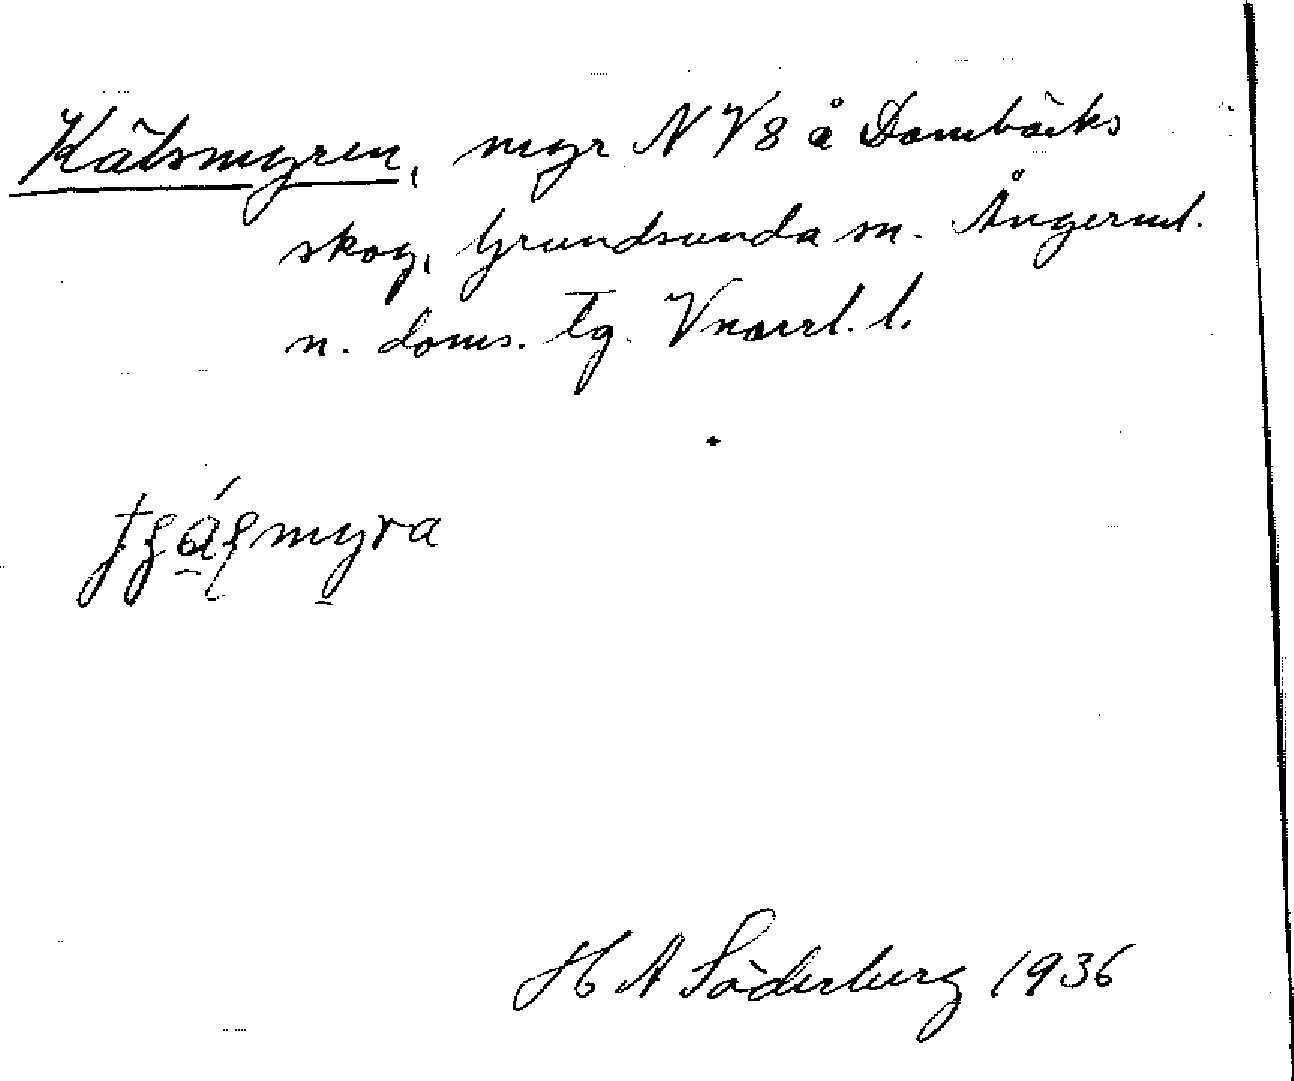 Kälsmyren, myr N V8 å Dombäcks
skog, Grundsunda sn. Ångerml.
n. doms. tg. Vnorrl. l.
H A Söderberg 1936